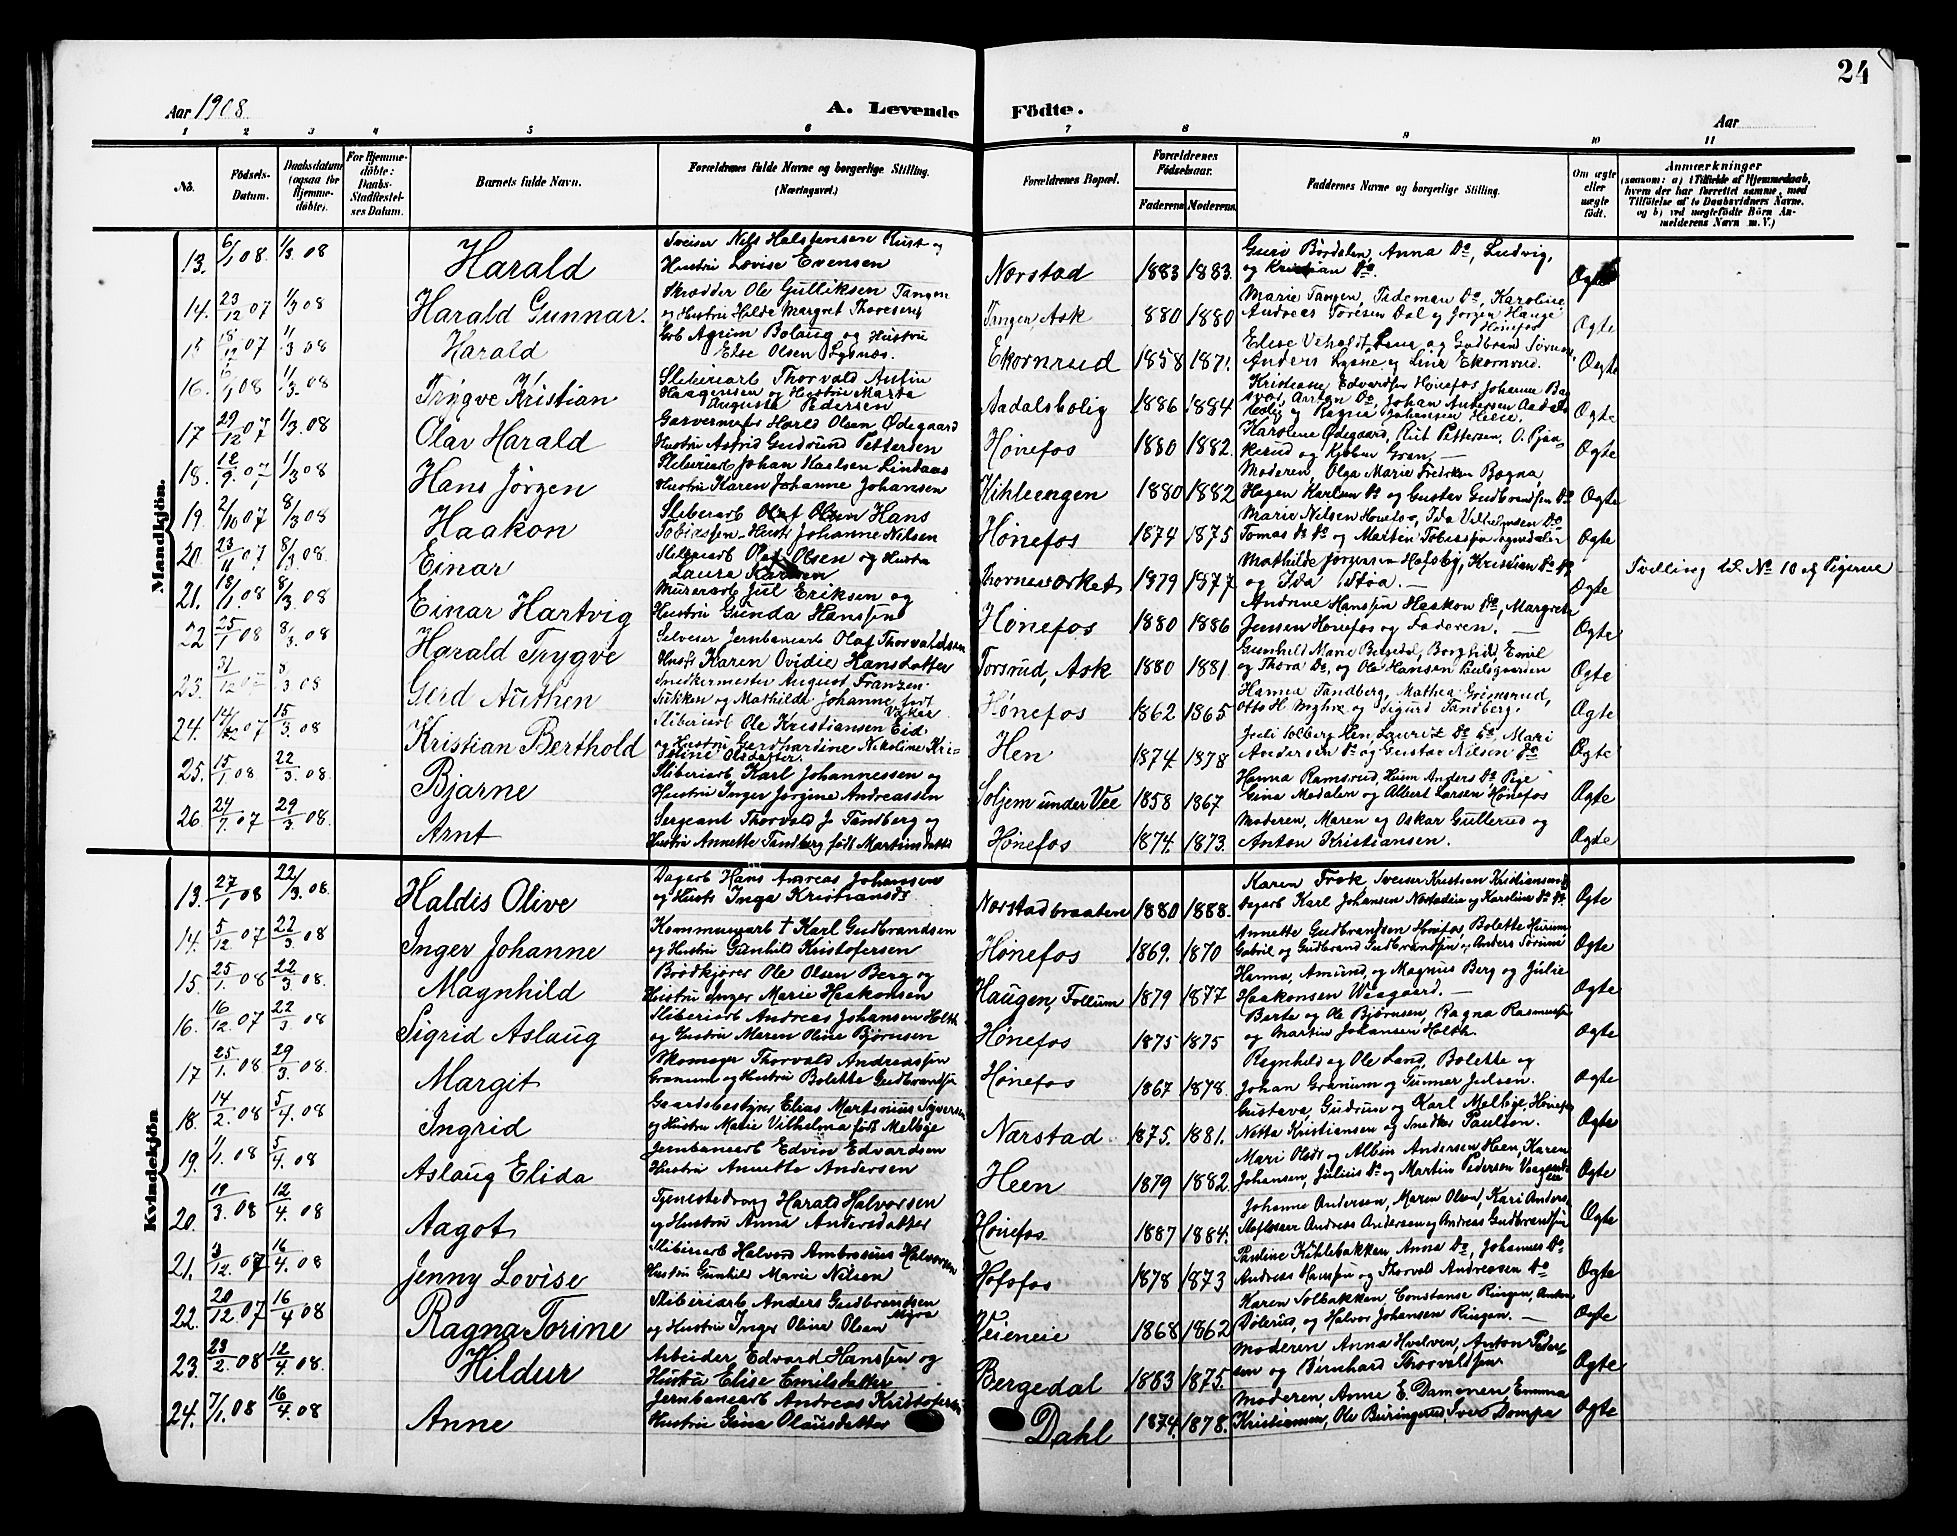 24
Aar 1908.
A. Levende Födte.
Aar
1 2 3 4 5 6 7 8 9 10 11
No.
Födsels-Datum.
Daabsdatum (ogsaa for Hjemmedöbte).
For Hjemmedöbte: Daabs-Stadfestelses Datum.
Barnets fulde Navn.
Forældrenes fulde Navne og borgerlige Stilling. (Næringsvei.)
Forældrenes Bopæl.
Forældrenes Födselsaar.
Faderens. Moderens.
Faddernes Navne og borgerlige Stilling.
Om ægte eller uægte födt.
Anmærkninger
(saasom: a) i Tilfælde af Hjemmedaab, hvem der har forrettet samme, med Tilföielse af to Daabsvidners Navne. og b) ved uægtefödte Börn Anmelderens Navn m. V.)
Mandkjön.
13. 6/1 08. 1/3 08 Harald Sveiser Nils Halstensen Rust og Hustru Lovise Evensen Norstad 1883 1883. Guri Børdalen, Anna Do, Ludvig, og Kristian Do. Ægte
14. 23/12 07 1/3 08 Harald Gunnar. Skrædder Ole Gulliksen Tangen og Hustru Hilde Margret Thoresen Tangen, Ask 880 1880 Marie Tangen, Tideman Do, Karoline Andreas Toresen Dal og Jørgen Hauge Hønefos Ægte
15 18/12 07 1/3 08 Harald Elise Olsen Lysnæs. Ekornrud 1858 1871. Anders Lysne og Lina Ekornrud. Ægte
16. 08 1/3 08 Trygve Kristian Sliberiarb Thorvald Antin Haagensen og Hustru Marta Augusta Pedersen Aadalsbolig 1886 1884 Kristiane Edvardsen Hønefos Johanne Ægte
17 29/12 07 1/3 08 Olav Harald Garvermester Harald Olsen Ødegaard Hustru Astrid Gudrund Pettersen Hønefos 1880 1882. Karoline Ødegaard, Rut Pettersen, Ægte
18. 07 1/3 08 Hans Jørgen Hustru Karen Johanne Johansen Kihleengen 1880 1882 Moderen, Olga Marie Fredriksen Bogna, Hagen Karlsen Do og Gustav Gudbrandsen Do Ægte
19. 2/10 07 8/3 08 Haakon Sliberiarb Hans Tobiassen Hustr Johanne Nilsen Hønefos 1874 1875 Marie Nilsen Hønefos, Ida Vilhelmsen Do Tomas Do og Martin Tobiassen Ægte
20. 23/11 07 8/3 08. Einar Sliberiarb Olaf Olsen og Hustru Laura Karlsen Thorneværket 1879 1877 Mathilde Jørgensen Hofsby, Kristian Do og Ida Ægte Tvilling til No 10 af Pigerne
21. 18/1 08 8/3 08 Einar Hartvig Murerarb Jul Eriksen og Hustru Gunda Hanssen Hønefos 1880 1886 Andrine Hanssen Haakon Do, Margrete Jensen Hønefos og Faderen. Ægte
22 25/1 08 8/3 08 Harald Trygve Jernbanearb Olaf Thorvaldsen Hustr Karen Ovidie Hansdatter Torsrud, Ask 1880 1881. Gunhild Marie Borghild, Emil og Thora Do, og Ole Hansen Ægte
23. 31/12 07 8/3 08 Gerd Authen Snedkermester August Franzen og Mathilde Johanne født Hønefos 1862 1865 Hanna Tandberg, Mathea Grimsrud, Otto H. Myhre og Sigurd Tandberg. Ægte
24. 14/12 07 15/3 08 Kristian Berthold Sliberiarb Ole Kristiansen Eid og Hustru Gerdhardine Nikoline Kristine Olsdatter. Hen 1874. 1878 Juli Solberg Hen, Lauritz Do, Mari Andersen Do og Gustav Nilsen Do Ægte
25. 15/1 08 22/3. 08. Bjarne Sliberiarb Karl Johannessen og Hustru Inger Jørgine Andreassen Soljem under Vee 1858 1867 Hanna Ramsrud, Anders Do Pige Gina Modalen og Albert Larsen Hønefos Ægte
26. 24/7 07 29/3 08. Arnt Sergeant Thorvald J Tandberg og Hustru Annette Tandberg født Martinsdatter Hønefos 1874. 1873. Moderen, Maren og Oskar Gullerud og Anton Kristiansen. Ægte
Kvindekjön
13. 27/1 08 22/3. 08. Haldis Olive Dagarb Hans Andreas Johansen og Hustr Inga Kristiansdr Norstadbraaten 1880 1888. Karen Frok, Sveiser Kristian Kristiansen, Dagarb Karl Johansen og Karoline Do Ægte
14. 5/12 07 22/3. 08 Inger Johanne Kommunearb † Karl Gudbrandsen og Hustru Gunhild Kristofersen Hønefos 1869. 1870 Annette Gudbrandsen Hønefos, Bolette Gabriel og Gudbrand Gudbrandsen, Anders Sørum Ægte
15. 25/1 08 22/3. 08. Magnhild Brødkjører Ole Olsen Berg og Hustru Inger Marie Haakonsen Haugen, Follum 1879 1877 Hanna, Amund, og Magnus Berg og Julie Haakonsen Waagaard. Ægte
16. 16/12 07 22/3 08 Sigrid Aslaug Sliberiarb Andreas Johansen Holth og Hustru Maren Oline Bjørnsen Hønefos 1875 1875 Berte og Ole Bjørnsen, Ragna Rasmussen og Martin Johansen Holth. Ægte
17 25/1. 08 29/3. 08. Margit Skomager Thorvald Andreassen Granum og Hustru Bolette Gudbrandsen Hønefos 1867 1878. Ragnhild og Ole Land, Bolette og Johan Granum og Gunnar Julsen. Ægte
18. 14/2. 08 5/4. 08 Ingrid Gaardsbestyrer Elias Martinius Syversen og Hustru Marie Vilhelma født Melbye Norstad. 1875. 1881. Gustava, Gudrun og Karl Melbye, Hønefos Netta Kristiansen og Snedker Paulson. Ægte
19. 1/1. 08 5/4. 08 Aslaug Elida Jernbanearb Edvin Edvardsen Hustru Annette Andersen Heen 1879 1882. Mari Olsdr og Albin Andersen Heen, Karen Johansen, Julius Do og Martin Pedersen Ægte
20. 19/3. 08 12/4. 08 Aagot Tjenestedreng Harald Halvorsen og Hustru Anne Andersdatter Hønefos. 1887 1884. Johanne Andersen, Maren Olsen, Kari Anders, Andreas Andersen og Andreas Gudbrandsen Ægte
21. 3/12. 07 16/4. 08 Jenny Lovise Sliberiarb Halvord Ambrosius Halvorsen Hustru Gunhild Marie Nilsen Hofsfos 1878 1873 Pauline Kihlebakken, Anna Do, Johannes Do. Andreas Hanssen og Thorvald Andreasen Do Ægte
22. 20/12 07 16/4 08 Ragna Torine Sliberiarb Anders Gudbrandsen Myra og Hustru Inger Oline Olsen Veieneie 1868 1862 Karen Solbakken, Constanse Ringen, Anton og Halvor Johansen Ringen. Ægte
23. 23/2. 08 12/4. 08. Hildur Arbeider Edvard Hanssen og Hustru Elise Emilsdatter Bergedal 1883 1875. Moderen Anna Hvelven, Anton Pedersen og Bernhard Thorvaldsen Ægte
24. 7/1. 08 16/4. 08 Anne Jernbanearb Andreas Kristofersen Hustru Gina Olausdatter Dahl 1874. 1878. Moderen, Anne E. Damonen Emma Kristiansen, Ole Iver Dompa Ægte